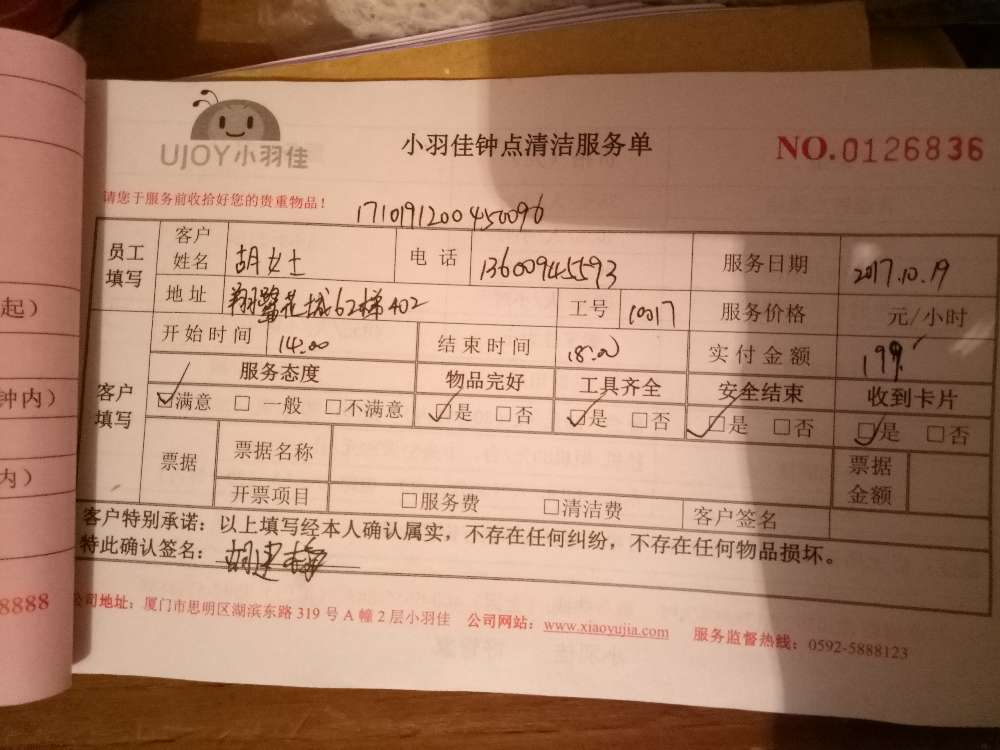 UJOY小羽佳
小羽佳钟点清洁服务单
NO.0126836
请您于服务前收拾好您的贵重物品！
1710191200450096
员工填写 客户姓名 胡女士 电话 13600945593 服务日期 2017.10.19
地址 翔鹭花城62梯402 工号 10017 服务价格 元/小时
客户填写 开始时间 14.00 结束时间 18.00 实付金额 199
服务态度 物品完好 工具齐全 安全结束 收到卡片
☑满意 □一般 □不满意 ☑是 □否 ☑是 □否 ☑是 □否 ☑是 □否
票据 票据名称 票据金额
开票项目 □服务费 □清洁费 客户签名
客户特别承诺：以上填写经本人确认属实，不存在任何纠纷，不存在任何物品损坏。
特此确认签名：
公司地址：厦门市思明区湖滨东路 319 号 A 幢 2 层小羽佳 公司网站：www.xiaoyujia.com 服务监督热线：0592-5888123
起）
钟内）
内）
8888